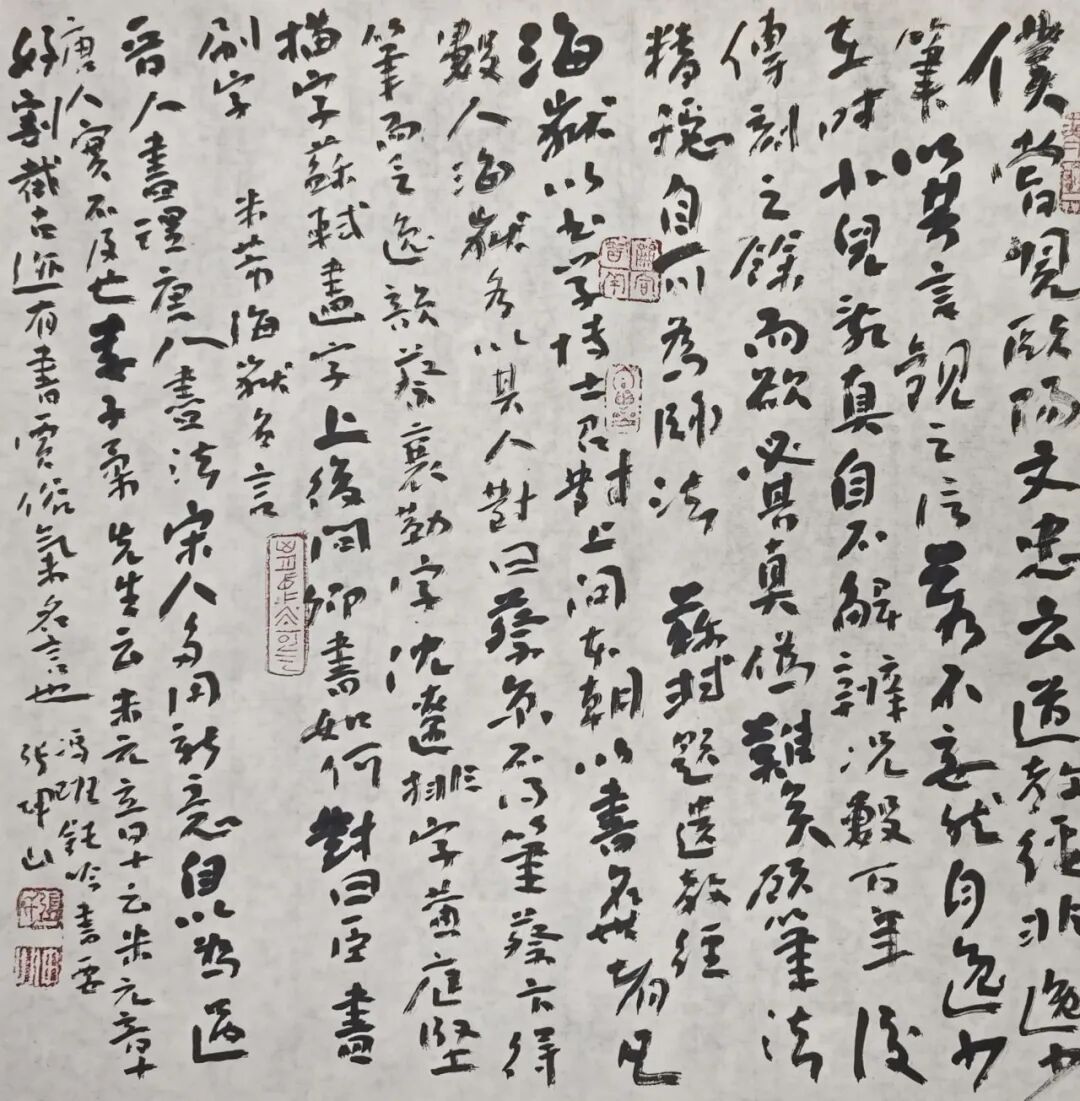 僕嘗覩歐陽文忠云遺教經非逸少
筆以其言觀之信若不妄然自逸少
在時小兒亂真自不解辨況數百年後
傳刻之餘而欲必其真偽難矣顧筆法
精穩自可為師法 蘇軾題遺教經
海嶽以書學博士召對上問本朝以書名世者凡
數人海嶽各以其人對曰蔡京不得筆蔡卞得
筆而乏逸韻蔡襄勒字沈遼排字黃庭堅
描字蘇軾畫字上復問卿書如何對曰臣書
刷字 米芾海嶽名言
晉人盡理唐人盡法宋人多用新意自以為過
唐人實不及也婁子柔先生云米元章云米元章
好割截古迹有書賈俗氣名言也
馮班鈍吟書要
張坤山